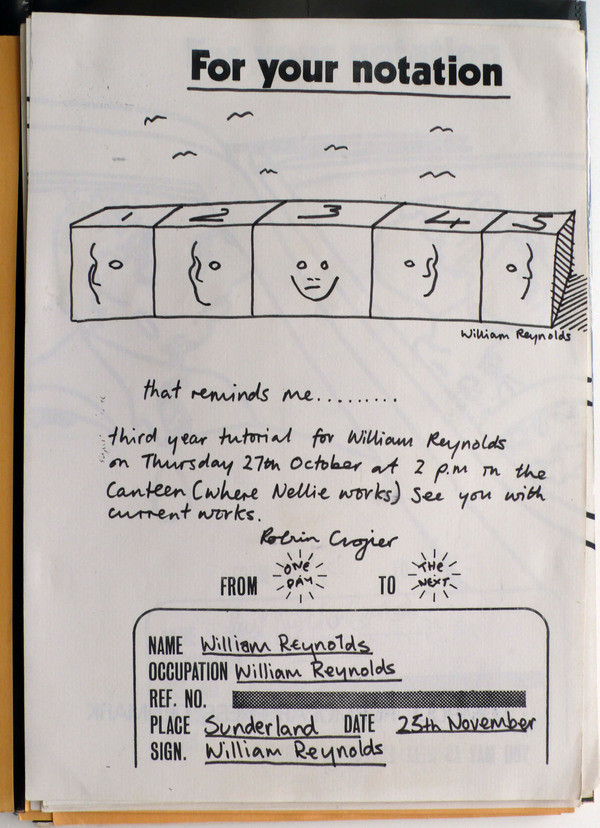 For your notation
1 2 3 4 5
William Reynolds
that reminds me.........
third year tutorial for William Reynolds
on Thursday 27th October at 2 p.m in the
Canteen (where Nellie works) See you with
current works.
Robin Crozier
FROM ONE DAY TO THE NEXT
NAME William Reynolds
OCCUPATION William Reynolds
REF. NO.
PLACE Sunderland DATE 25th November
SIGN. William Reynolds